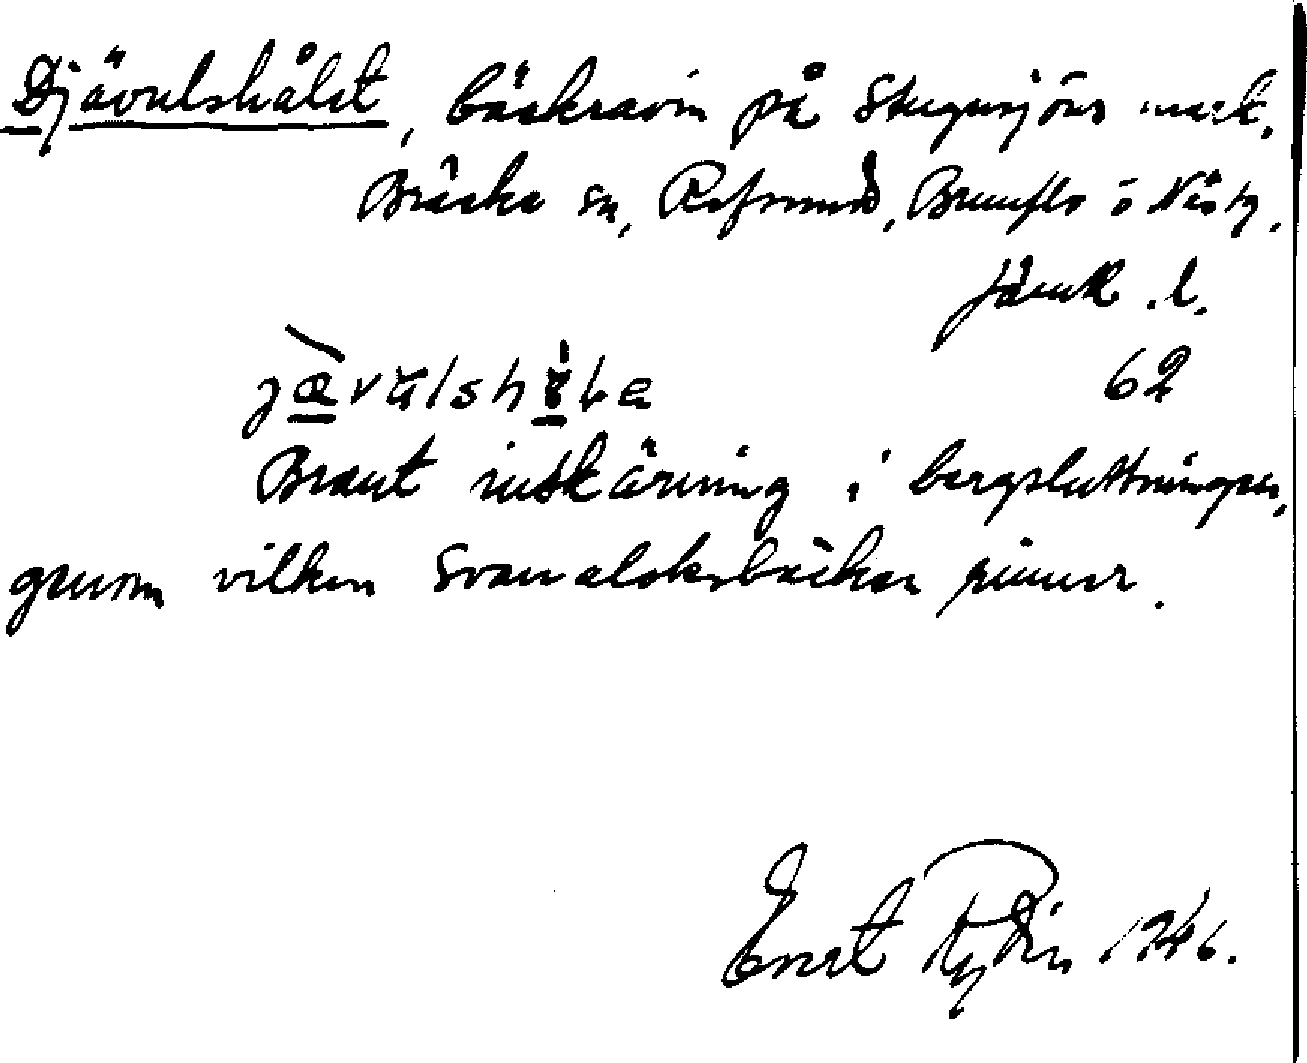 Djävulshålet, bäckravin på Stugusjöns mark,
Bräcke sn, Refsund, Brunflo o Näs tg,
Jämtl. l.
62
Brant inskärning i bergsluttningen,
genom vilken Svanaloksbäcken rinner.
Evert Rydin 1946.